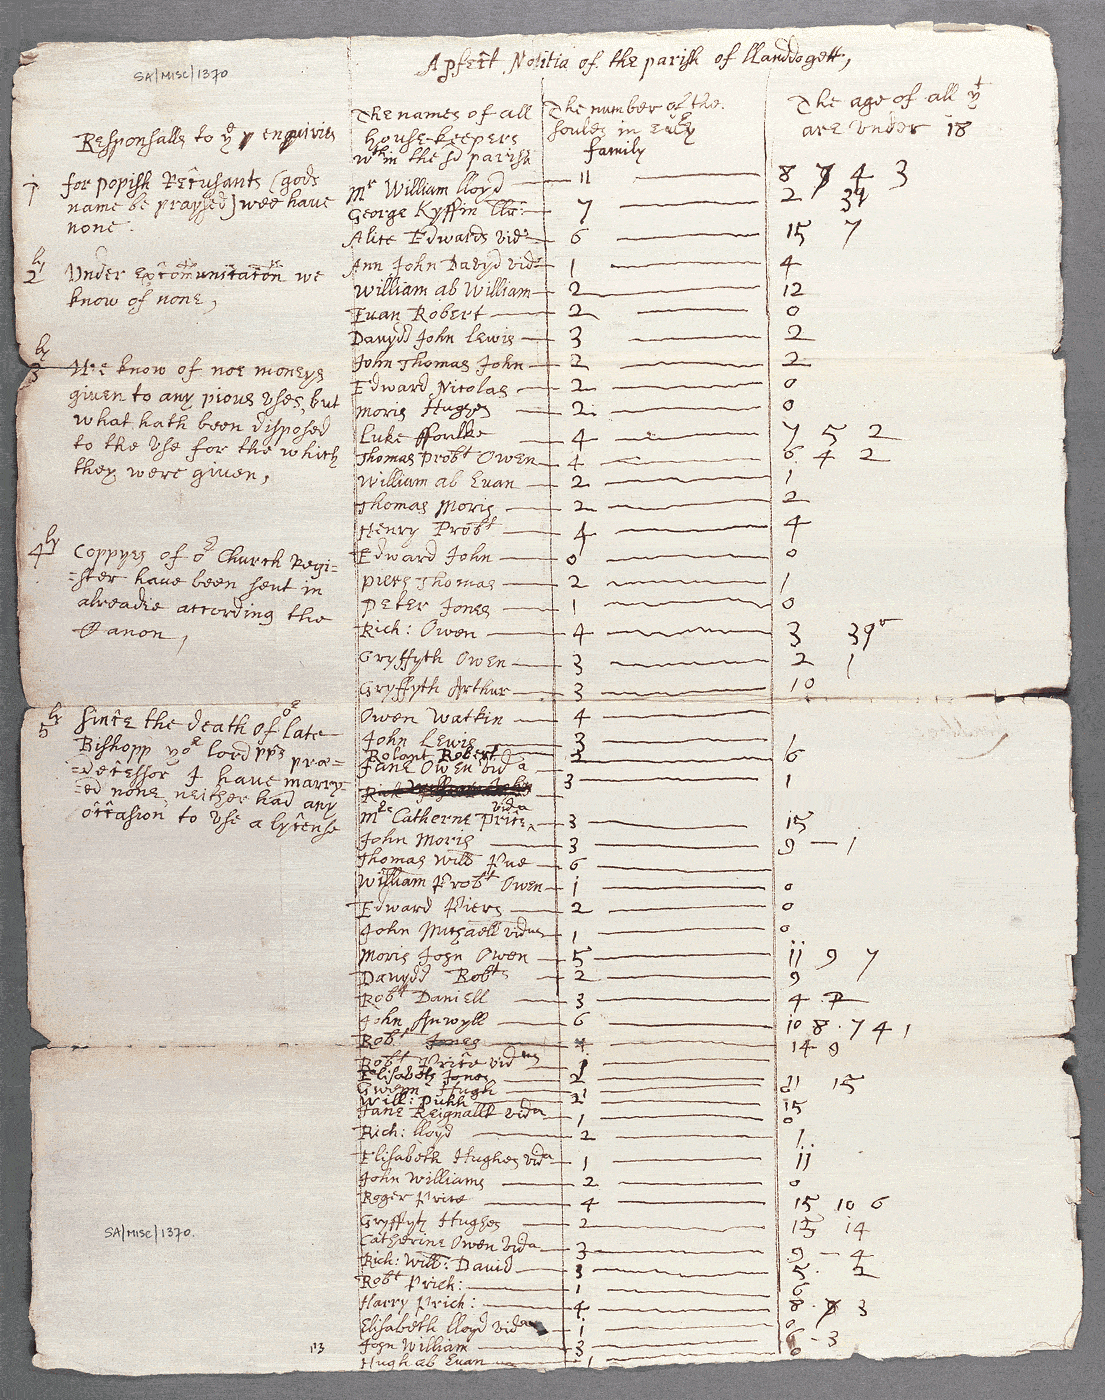 A pfect Notitia of the parish of llanddogett,
SA/MISC/1370
Responsalls to yr enquiries
1 for popish Recusants (gods
name be praysed) wee have
none.
2ly Under excommunication we
know of none,
3ly Wee know of noe moneys
given to any pious uses, but
what hath been disposed
to the use for the which
they were given,
4ly Coppyes of or Church Regi=
=ster have been sent in
alreadie according the
Canon,
5ly Since the death of or late
Bishopp yor lordpps præ=
=decessor I have marry=
=ed none, neither had any
occasion to use a lycense
SA/MISC/1370.
The names of all
house-keepers
wthin the sd parish
The number of the
soules in every
family
The age of all yt
are under 18
Mr William lloyd — 11 — 8 7 4 3
George Kyffin — 7 — 2
Alice Edwards vida — 6 — 15 7
Ann John Davyd vida — 1 — 4
William ab William — 2 — 12
Evan Robert — 2 — 0
Davydd John Lewis — 3 — 2
John Thomas John — 2 — 2
Edward Nicolas — 2 — 0
Moris Hughes — 2 — 0
Luke ffoulke — 4 — 7 5 2
Thomas Probt Owen — 4 — 6 4 2
William ab Evan — 2 — 1
Thomas Moris — 2 — 2
Henry Probt — 4 — 4
Edward John — 0 — 0
Piers Thomas — 2 — 1
Peter Jones — 1 — 0
Rich: Owen — 4 — 3
Gryffyth Owen — 3 — 2 1
Gryffyth Arthur — 3 — 10
Owen Watkin — 4
John Lewis — 3 — 1
Rolant Robert — 3 — 6
Jane Owen vida — 3 — 1
Mrs Catherne Price vidua — 3 — 15
John Moris — 3 — 9 — 1
Thomas Willm Pue — 6
William Probt Owen — 1 — 0
Edward Piers — 2 — 0
John Michaell vidua — 1 — 0
Moris John Owen — 5 — 11 9 7
Davydd Robts — 2 — 9
Robt Daniell — 3 — 4 2
John Anwyll — 6 — 10 8 7 4 1
Robt Jones — 4 — 14 9
Robt Price vidua — 1
Elisabeth Jones — 2 — 11 15
Gwenn Hugh — 1 — 0
Will: Pukh — 2 — 15
Jane Reignallt vida — 1 — 0
Rich: lloyd — 2 — 1
Elisabeth Hughes vida — 1 — 11
John Williams — 2 — 0
Roger Price — 4 — 15 10 6
Gryffyth Hughes — 2 — 15 14
Catherine Owen vida — 3 — 9 — 4
Rich: Willm: David — 3 — 5 2
Robt Prich: — 1 — 6
Harry Prich: — 4 — 8 3
Elisabeth lloyd vida — 1 — 0
John William — 3 — 6 - 3
Hugh ab Evan — 1 — 0